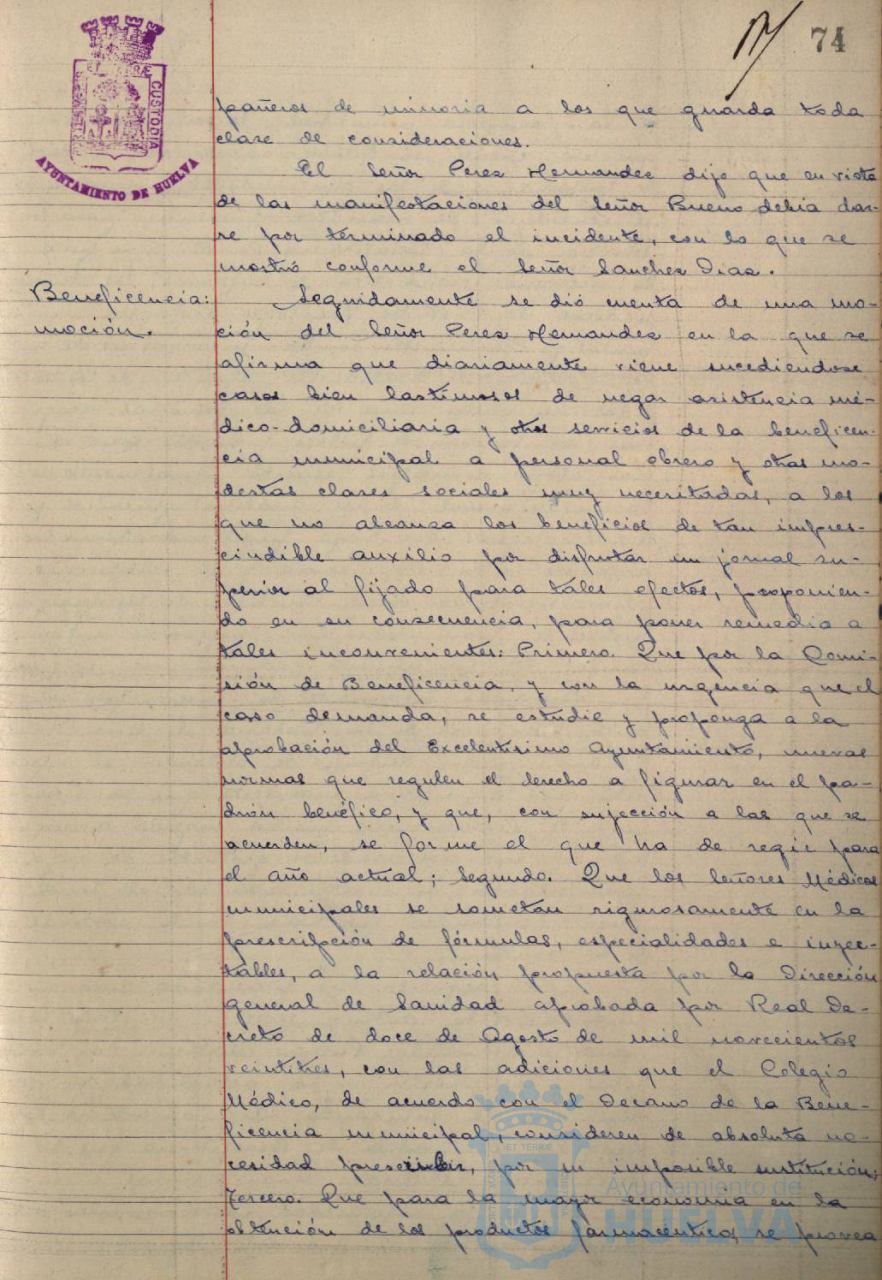 74
PORTUS MARIS ET TERRÆ CUSTODIA
AYUNTAMIENTO DE HUELVA
pañeros de minoria a los que guarda toda
clase de consideraciones.
El Señor Perez Hernandez dijo que en vista
de las manifestaciones del Señor Bueno debia dar-
se por terminado el incidente, con lo que se
mostró conforme el Señor Sanchez Diaz.
Beneficencia:
moción.
Seguidamente se dió cuenta de una mo-
ción del Señor Perez Hernandez en la que se
afirma que diariamente viene sucediendose
casos bien lastimosos de negar asistencia mé-
dico-domiciliaria y otros servicios de la beneficen-
cia municipal a personal obrero y otras mo-
destas clases sociales muy necesitadas, a los
que no alcanza los beneficios de tan impres-
cindible auxilio por disfrutar un jornal su-
perior al fijado para tales efectos, proponien-
do en su consecuencia, para poner remedio a
tales inconvenientes: Primero. Que por la Comi-
sión de Beneficencia, y con la urgencia que el
caso demanda, se estudie y proponga a la
aprobación del Excelentisimo Ayuntamiento, nuevas
normas que regulen el derecho a figurar en el pa-
drón benéfico, y que, con sujección a las que se
acuerden, se forme el que ha de regir para
el año actual; Segundo. Que los Señores Médicos
municipales se sometan rigurosamente en la
prescripción de fórmulas, especialidades e inyec-
tables, a la relación propuesta por la Dirección
general de Sanidad aprobada por Real De-
creto de doce de Agosto de mil novecientos
veintitres, con las adiciones que el Colegio
Médico, de acuerdo con el Decano de la Bene-
ficencia municipal, consideren de absoluta ne-
cesidad prescribir, por su imposible sustitución;
Tercero. Que para la mayor economia en la
obtención de los productos farmacéuticos, se provea
Ayuntamiento de
HUELVA